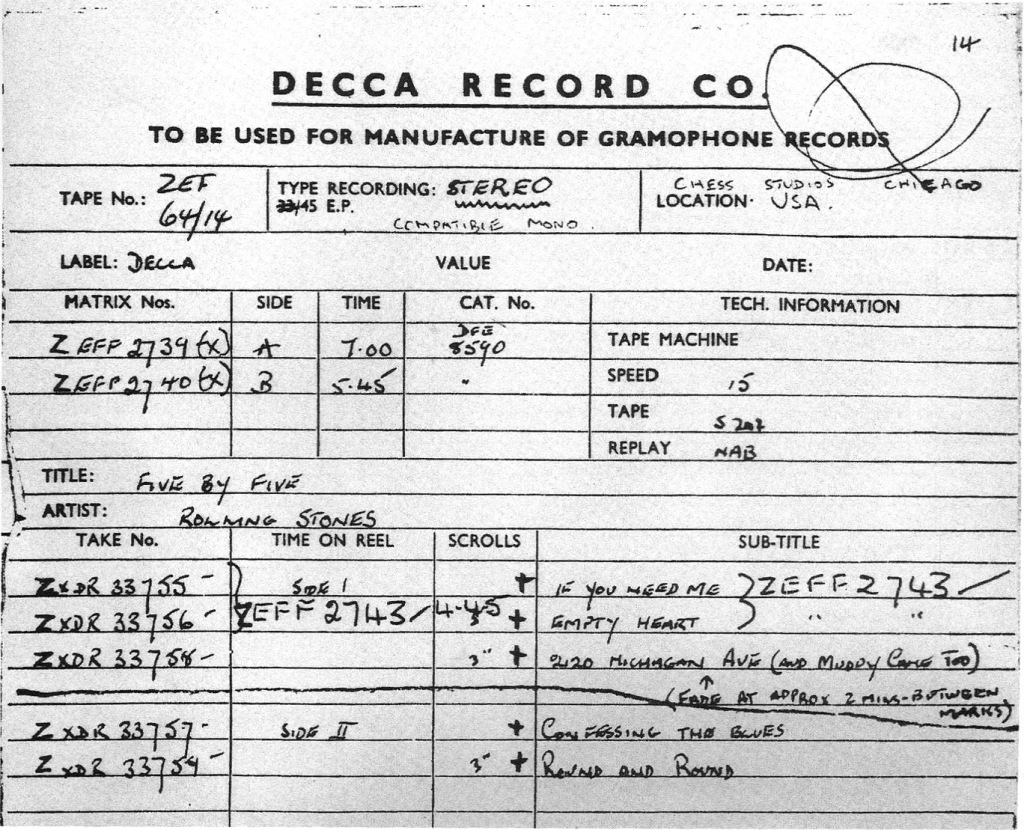 14
DECCA RECORD CO.
TO BE USED FOR MANUFACTURE OF GRAMOPHONE RECORDS
TAPE No.: ZEF 64/14 TYPE RECORDING: STEREO CHESS STUDIOS CHICAGO
33/45 E.P. COMPATIBLE MONO. LOCATION· USA.
LABEL: DECCA VALUE DATE:
MATRIX Nos. SIDE TIME CAT. No. TECH. INFORMATION
Z EFF 2739 (X) A 7.00 DFE 8590 TAPE MACHINE
Z EFF 2740 (X) B 5.45 " SPEED 15
TAPE S 207
REPLAY NAB
TITLE: FIVE BY FIVE
ARTIST: ROLLING STONES
TAKE No. TIME ON REEL SCROLLS SUB-TITLE
ZXDR 33755 - SIDE 1 + IF YOU NEED ME } ZEFF 2743
ZXDR 33756 - ZEFF 2743 4.45 3" + EMPTY HEART " "
ZXDR 33758 - 3" + 2120 MICHIGAN AVE (AND MUDDY CAME TOO)
↑
(FADE AT APPROX 2 MINS-BETWEEN MARKS)
ZXDR 33757 - SIDE II + CONFESSING THE BLUES
ZXDR 33759 - 3" + ROUND AND ROUND